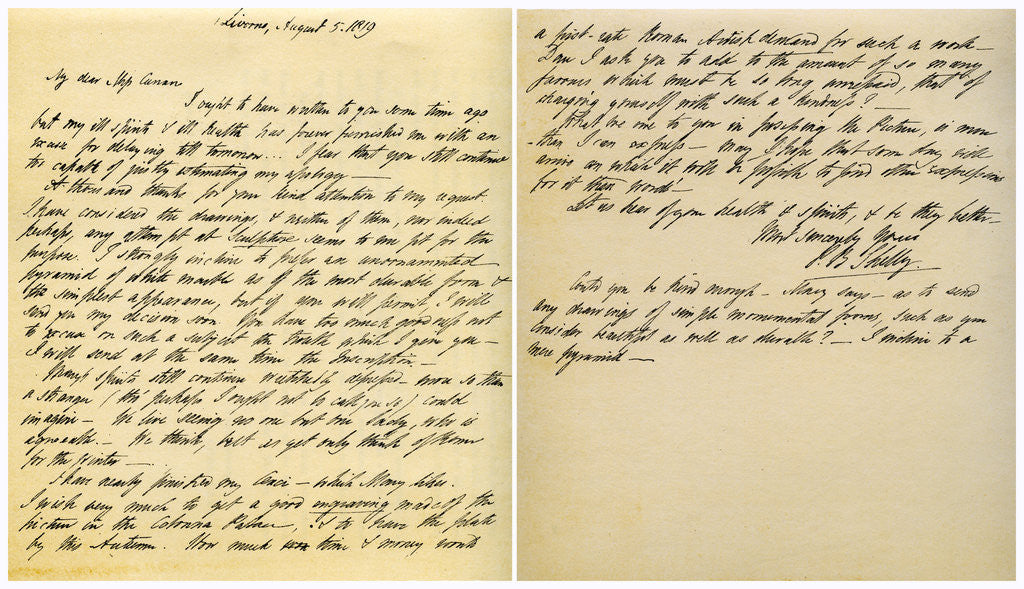 Livorno, August 5. 1819
My dear Miss Curran
I ought to have written to you some time ago
but my ill spirits & ill health has forever furnished me with an
excuse for delaying till tomorrow... I fear that you still continue
too capable of justly estimating my apology —
A thousand thanks for your kind attention to my request.
I have considered the drawings, & neither of them, nor indeed
perhaps, any attempt at Sculpture seems to me fit for the
purpose. I strongly incline to prefer an unornamented
pyramid of white marble as of the most durable form &
the simplest appearance, but if you will permit I will
send you my decision soon. You have too much goodness not
to excuse on such a subject the trouble which I give you —
I will send at the same time the inscription. —
Mary's spirits still continue wretchedly depressed — more so than
a stranger (tho' perhaps I ought not to call you so) could
imagine — We live seeing no one but one lady, who is
agreeable. — We think, but as yet only think of Rome
for the winter —
I have nearly finished my Cenci — which Mary likes.
I wish very much to get a good engraving made of the
picture in the Colonna Palace, & to have the plate
by this Autumn. How much time & money would
a first-rate Roman Artist demand for such a work —
Dare I ask you to add to the amount of so many
favours which must be so long unrepaid, that of
charging yourself with such a kindness? —
What we owe to you in the Picture, is more
than I can express — may I hope that some day will
arrive in which it will be possible to find other expressions
for it than words —
Let us hear of your health & spirits, & be they better —
Most sincerely Yours
P B Shelley.
Could you be kind enough — Mary says — as to send
any drawings of simple monumental forms, such as you
consider beautiful as well as durable? — I incline to a
mere pyramid —